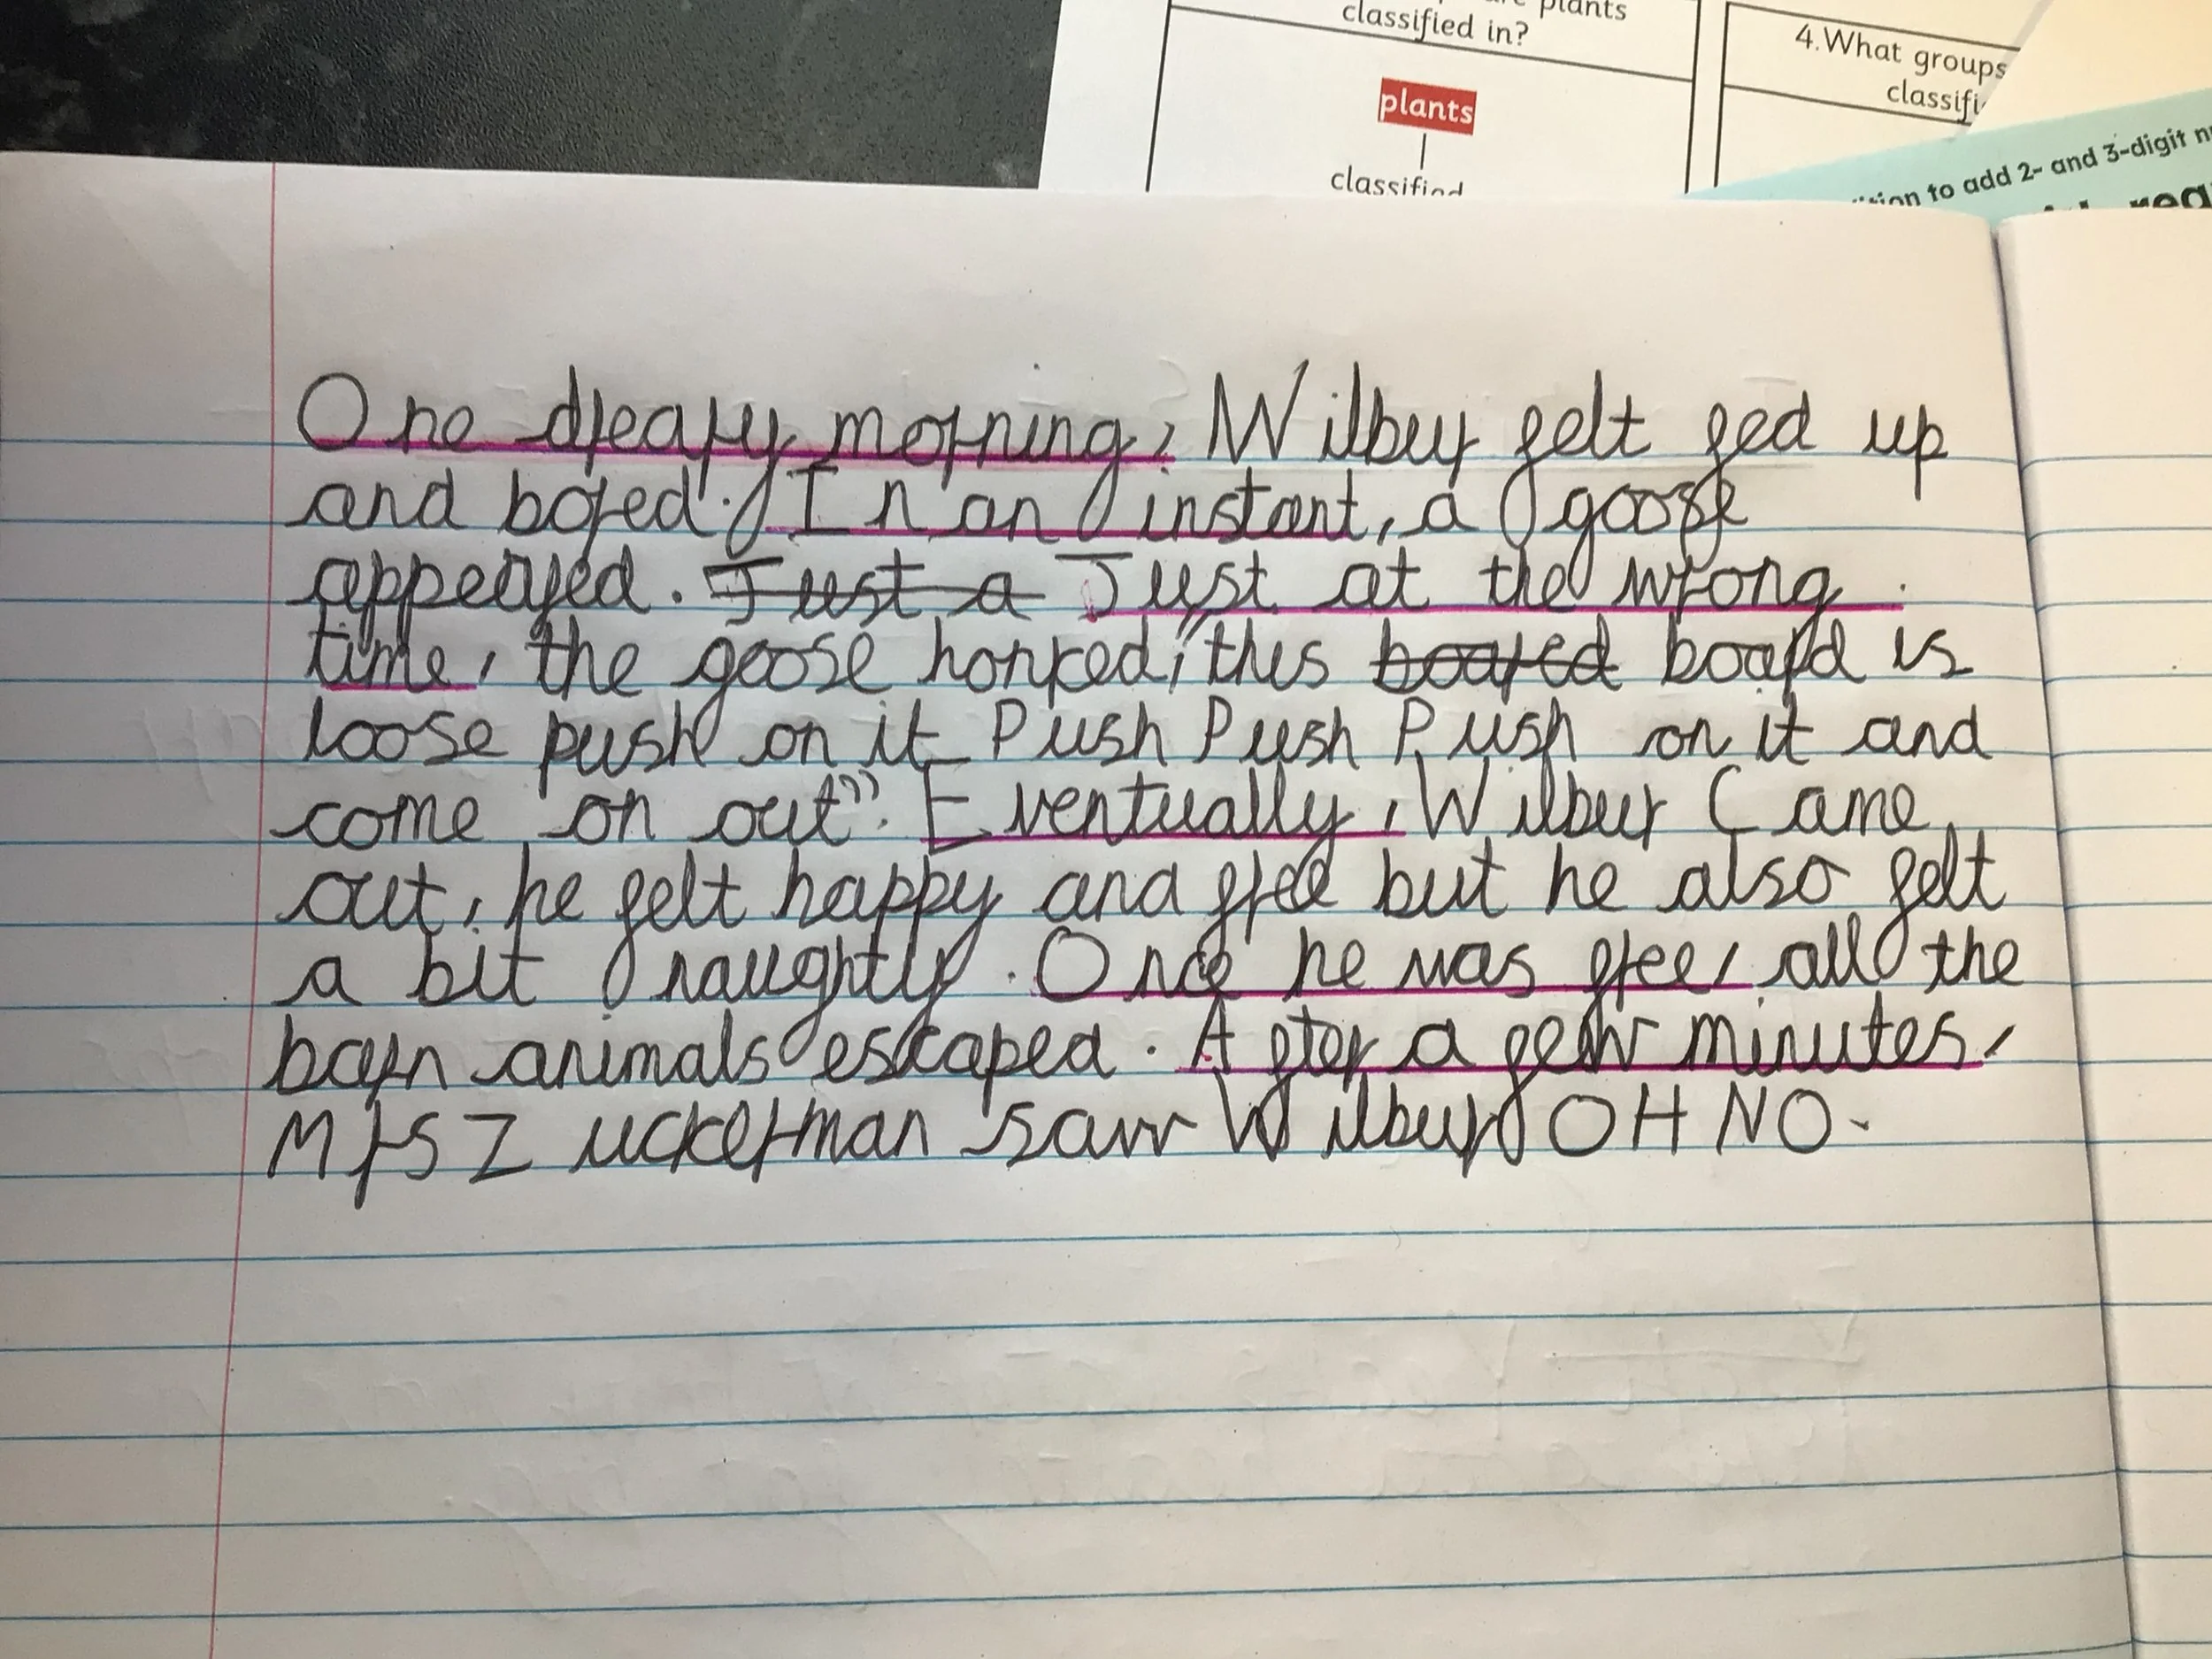 plants
classified in?
plants
classified
4. What groups
classifi
ition to add 2- and 3-digit n
One dreary morning, Wilbur felt fed up
and bored. In an instant, a goose
appeared. Just a Just at the wrong
time, the goose honked, "this boared board is
loose push on it Push Push Push on it and
come on out". Eventually, Wilbur Came
out, he felt happy and free but he also felt
a bit naughty. Once he was free, all the
barn animals escaped. After a few minutes,
Mrs Zuckerman saw Wilbur OH NO.